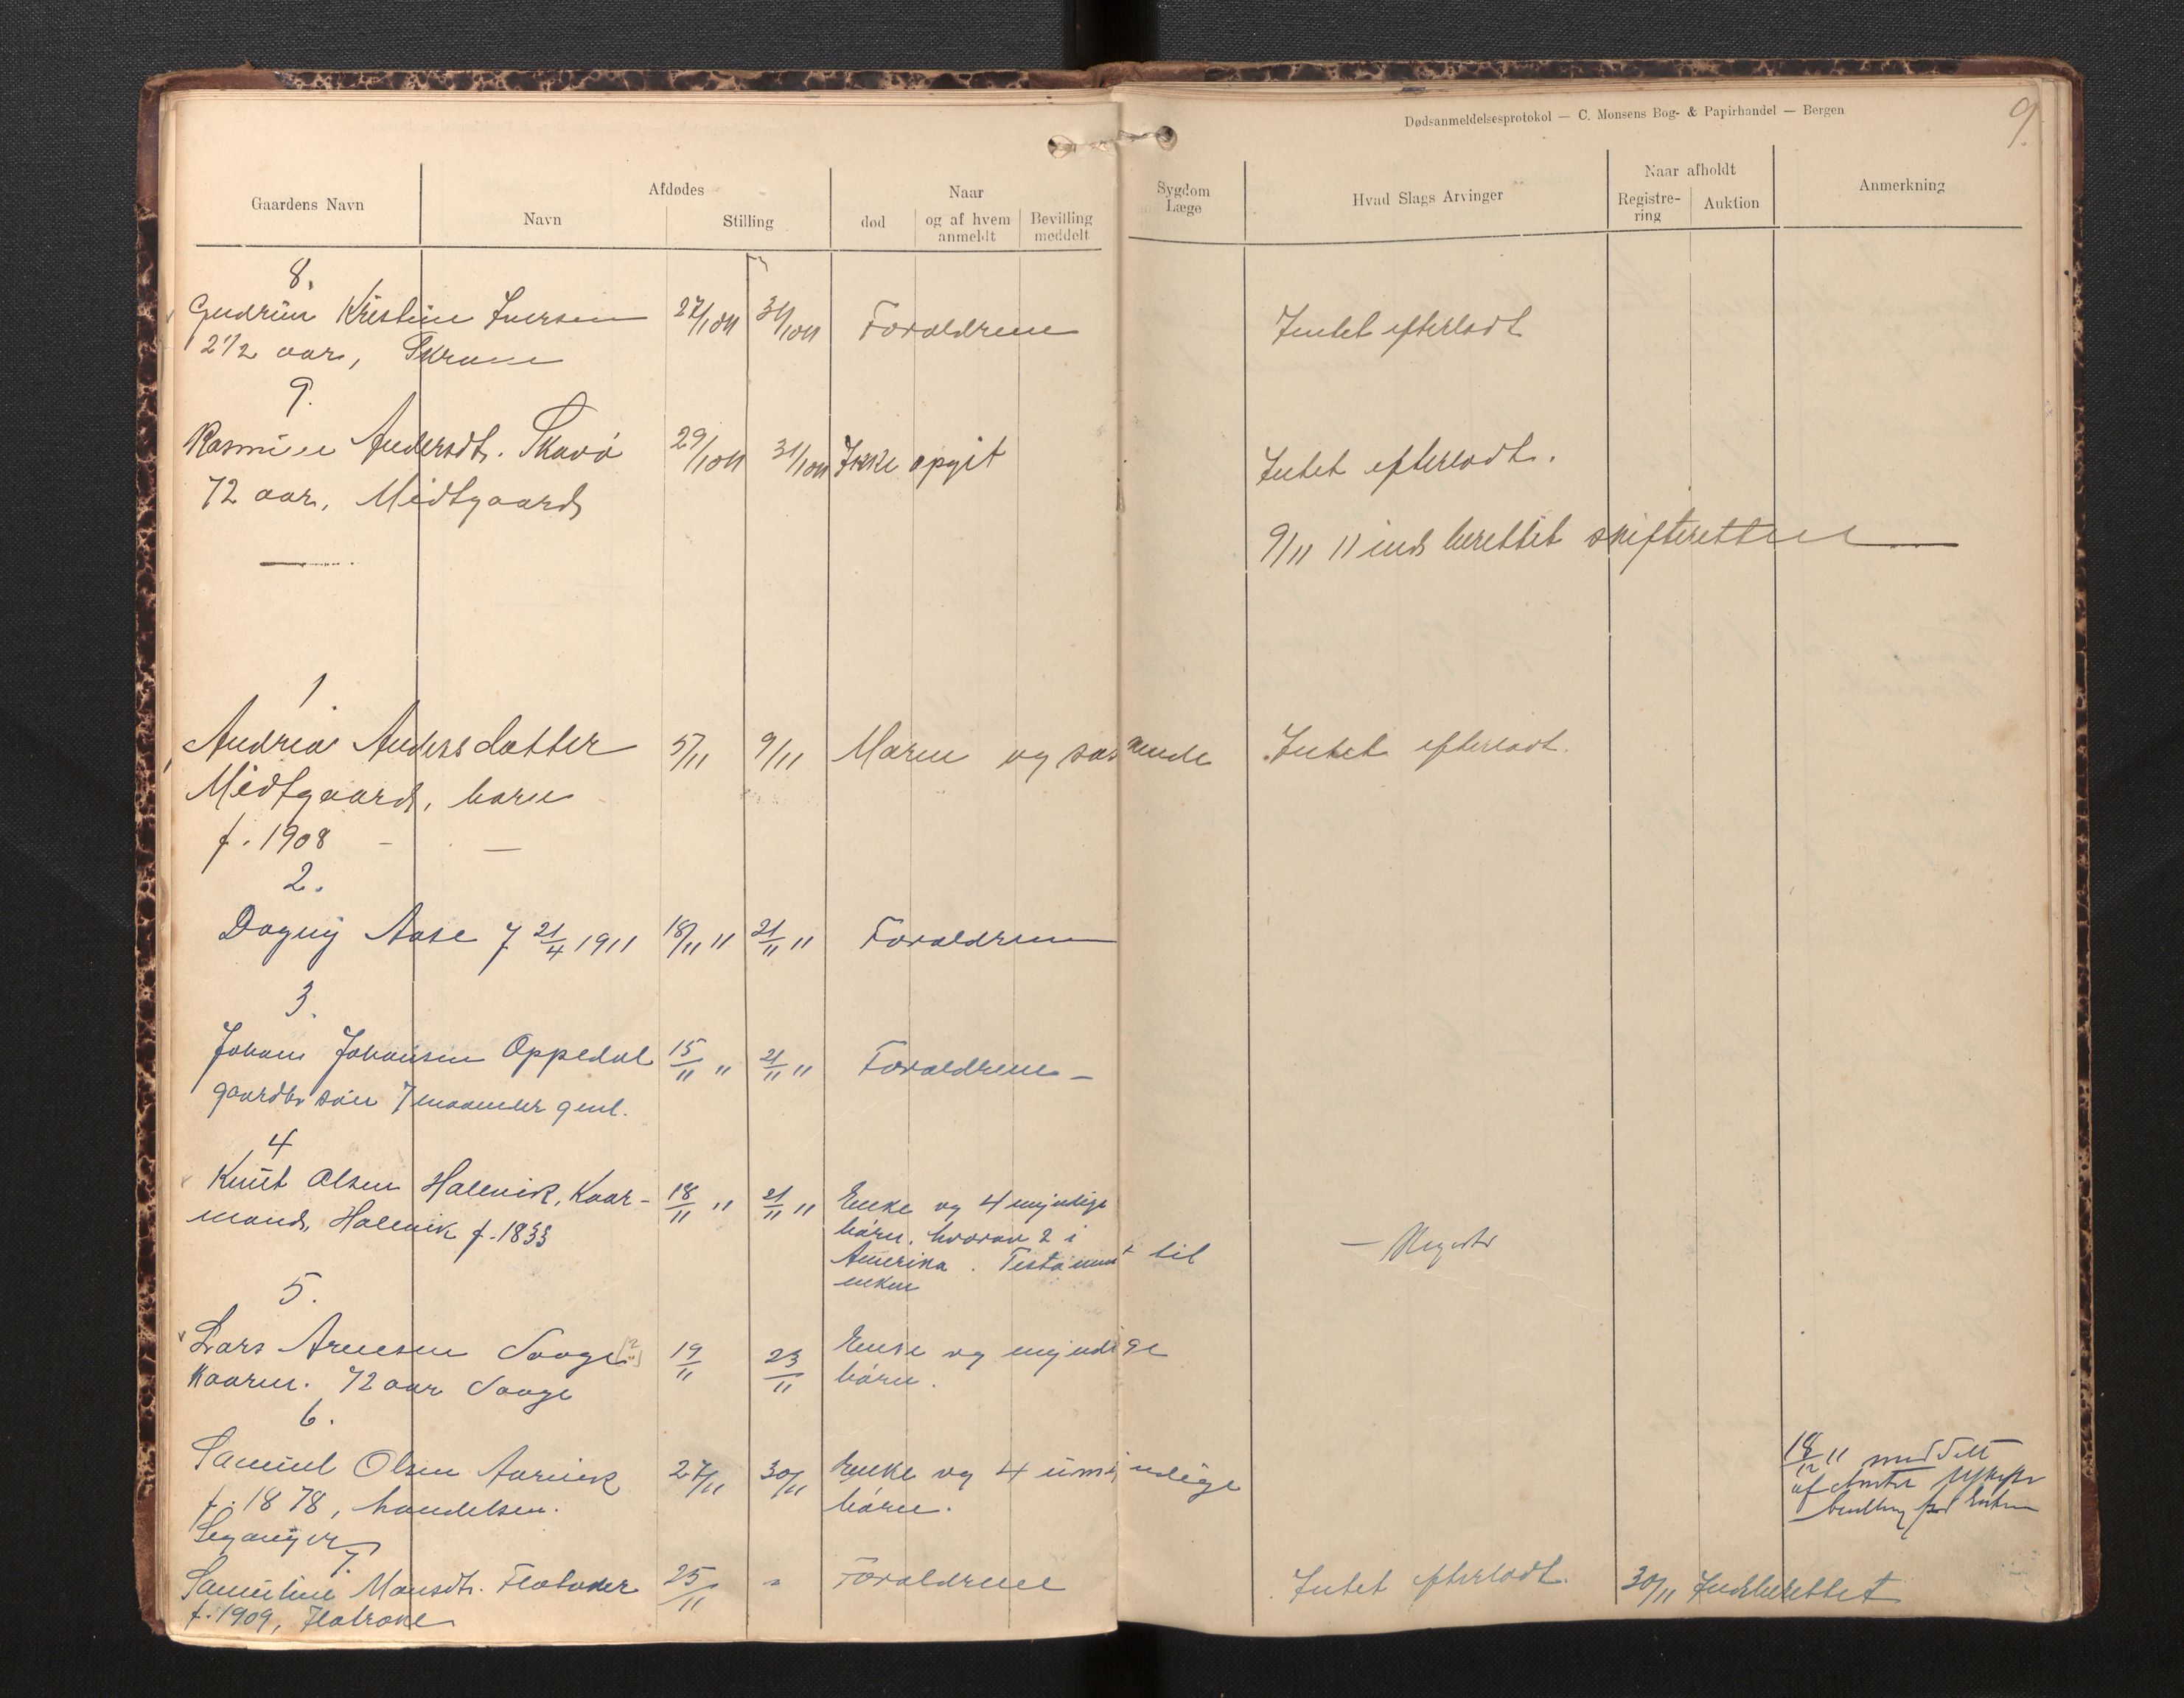 Dødsanmeldelsesprotokol — C. Monsens Bog- & Papirhandel — Bergen
9.
Gaardens Navn
Afdødes
Navn
Stilling
Naar
død
og af hvem anmeldt
Bevilling meddelt
Sygdom Læge
Hvad Slags Arvinger
Naar afholdt
Registrering
Auktion
Anmerkning
8.
Gudrun Kristine Iversen 27/10 11 31/10 11 Forældrene Intet efterladt
2 1/2 aar,
9.
Rasmine Andersdt. Skavø 29/10 11 31/10 11 Ikke opgit Intet efterladt.
72 aar, Midtgaard
9/11 11 indberettet skifteretten
1
Andrea Andersdatter 5/11 9/11 Moren og søskende Intet efterladt.
Midtgaard, barn
f. 1908
2.
Dagny Aase f 21/4 1911 18/11 11 21/11 11 Forældrene
3.
Johan Johansen Oppedal 15/11 " 21/11 11 Forældrene
gaardbr søn 7 maaneder gml.
4
Knut Olsen Hallvik, Kaar- 18/11 " 21/11 11 Enke og 4 myndige
mand, Hallvik f. 1833 børn, hvorav 2 i
Amerika. Testament til
enken
5.
Lars Arnesen 19/11 23/11 Enke og myndige
Kaarm. 72 aar børn.
6.
Samuel Olsen 27/11 30/11 Enke og 4 umyndige
f. 1878, handelsm. børn.
18/12 11 meddelt
af Amtet
7.
Samuline Monsdt. 25/11 " Forældrene Intet efterladt. 30/11 Indberettet
f. 1909,